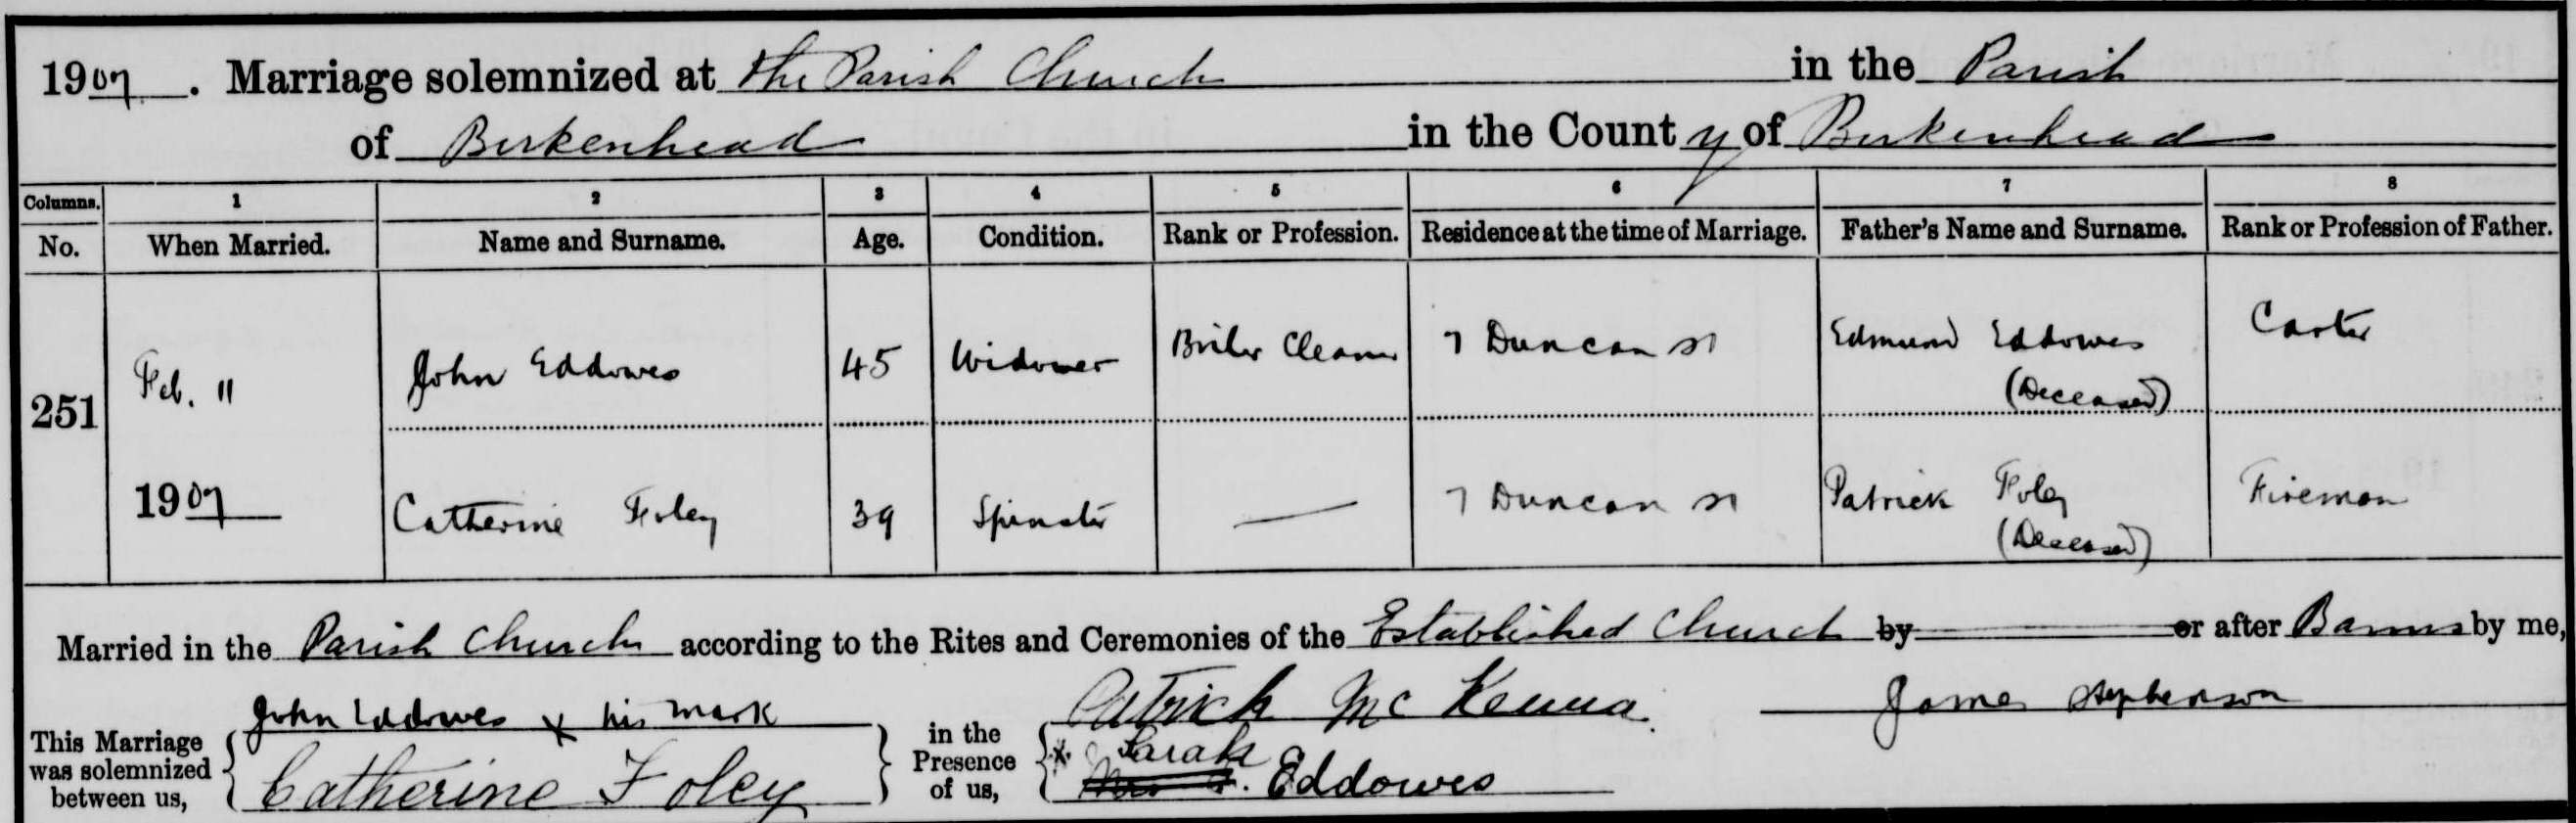 1907. Marriage solemnized at the Parish Church in the Parish
of Birkenhead in the County of Birkenhead
Columns. 1 2 3 4 5 6 7 8
No. When Married. Name and Surname. Age. Condition. Rank or Profession. Residence at the time of Marriage. Father's Name and Surname. Rank or Profession of Father.
251 Feb. 11 John Eddowes 45 Widower Boiler Cleaner 7 Duncan St Edmund Eddowes Carter
(Deceased)
1907 Catherine Foley 39 Spinster — 7 Duncan St Patrick Foley Fireman
(Deceased)
Married in the Parish Church according to the Rites and Ceremonies of the Established Church by or after Banns by me,
John Eddowes x his mark Patrick Mc Kenna. James Stephenson
This Marriage was solemnized between us, in the Presence of us,
Catherine Foley x Sarah Eddowes